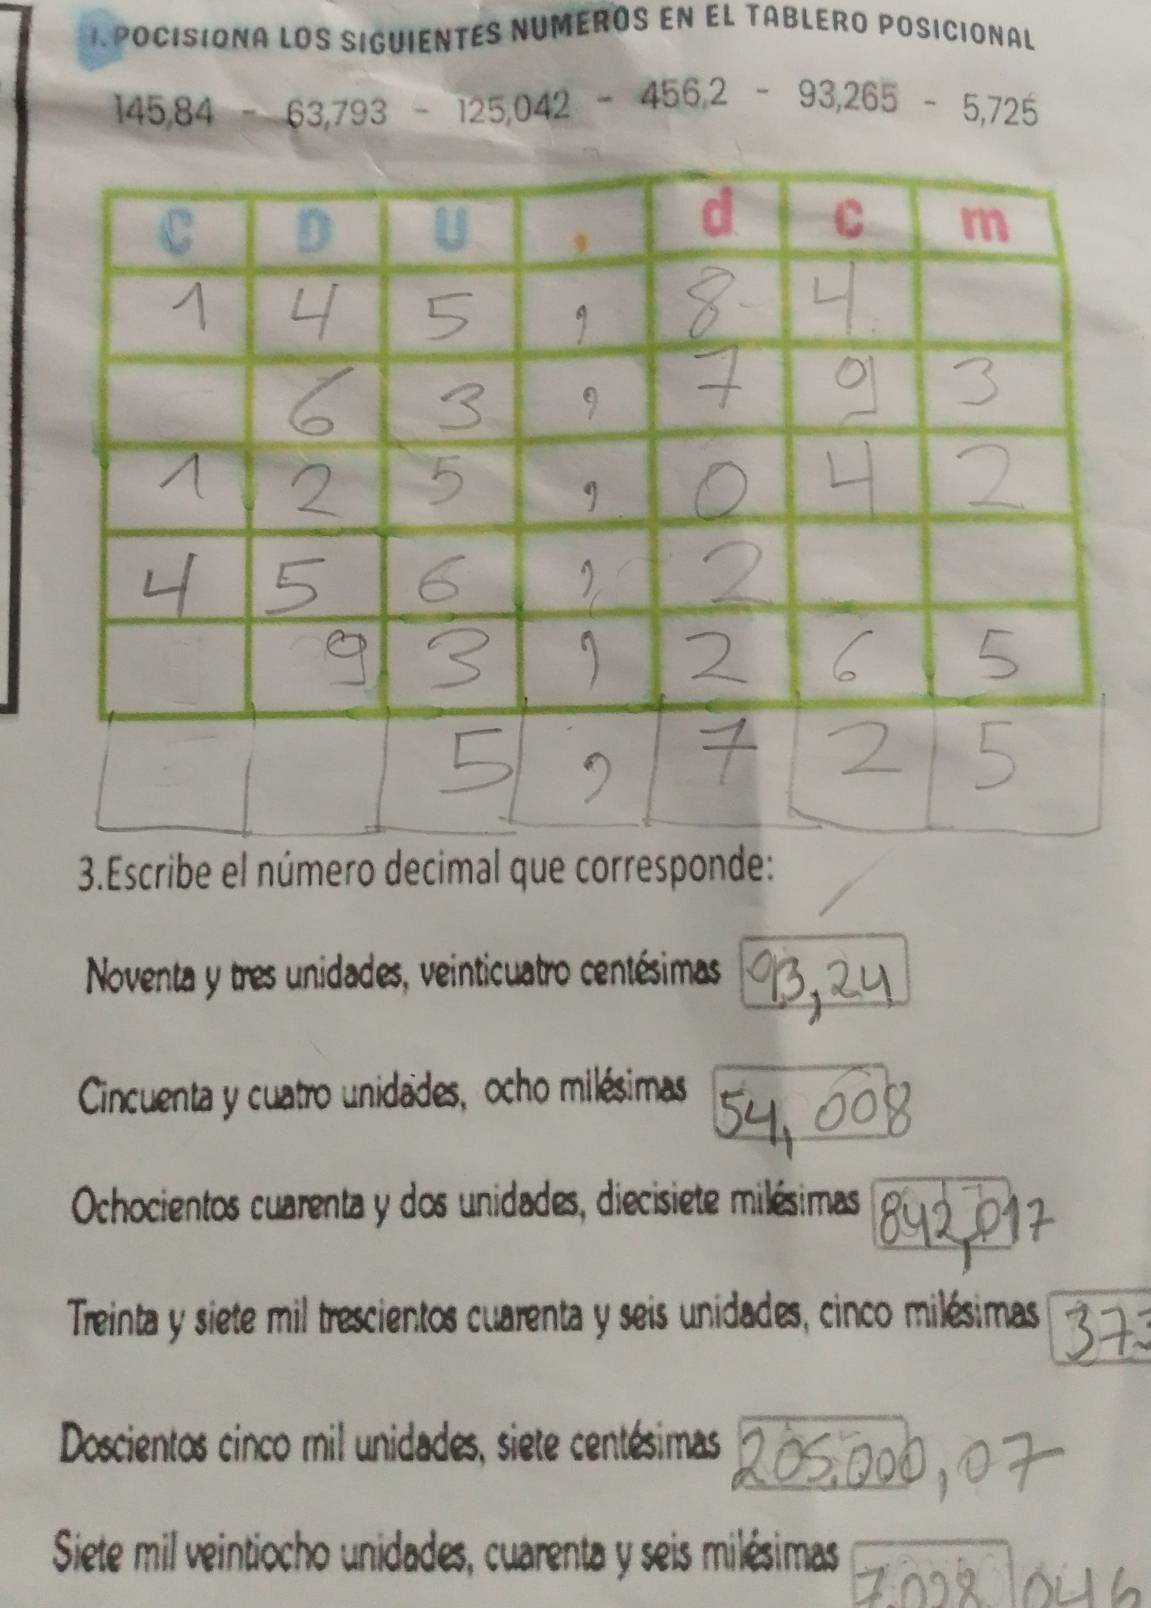 1. POCISIONA LOS SIGUIENTES NUMEROS EN EL TABLERO POSICIONAL
145,84 - 63,793 - 125,042 - 456,2 - 93,265 - 5,725
C D U , d c m
1 4 5 , 8 4
6 3 , 7 9 3
1 2 5 , 0 4 2
4 5 6 , 2
9 3 , 2 6 5
5 , 7 2 5
3.Escribe el número decimal que corresponde:
Noventa y tres unidades, veinticuatro centésimas 93,24
Cincuenta y cuatro unidades, ocho milésimas 54,008
Ochocientos cuarenta y dos unidades, diecisiete milésimas 842,017
Treinta y siete mil trescientos cuarenta y seis unidades, cinco milésimas 373
Doscientos cinco mil unidades, siete centésimas 205.000,07
Siete mil veintiocho unidades, cuarenta y seis milésimas 7.028,046